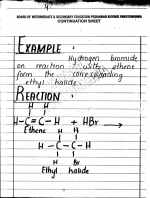 BOARD OF INTERMEDIATE & SECONDARY EDUCATION PESHAWAR KHYBER PAKHTUNKHWA
CONTINUATION SHEET
EXAMPLE:
Hydrogen bromide
on reaction with ethene
form the corresponding
ethyl halide.
REACTION:
H H
H-C=C-H + HBr →
Ethene H H
H-C-C-H
H Br
Ethyl halide